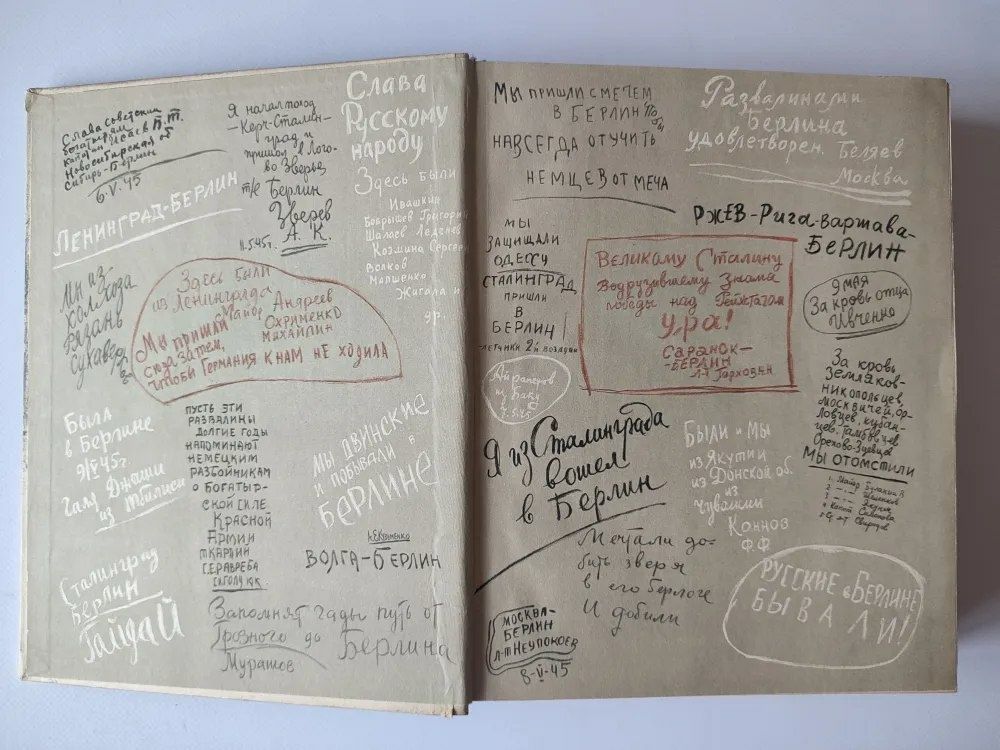 Слава советским
богатырям
капитан Исаев П.Т.
Новосибирская об
Сибирь-Берлин
6-V.45
Я начал поход
-Керч-Сталин-
град и
пришол в Лого-
во Зверье,
т/е Берлин
Зверев
А. К.
11.5.45г.
Слава
Русскому
народу
Здесь были
Ивашкин
Бобрышев Григорий
Шалаев
Козмина Сергеев
Волков
Мапшенко
Жигала и
др.
ЛЕНИНГРАД-БЕРЛИН
Мы из
колхоза
Рязань
Сухаверх
Здесь были
из Ленинграда
Майор Андреев
Охрименко
Михайлин
Мы пришли
сюда затем,
чтоби Германия к нам не ходила
Была
в Берлине
9/V 45г.
Гала Джашии
из Тбилиси
ПУСТЬ ЭТИ
РАЗВАЛИНЫ
ДОЛГИЕ ГОДЫ
НАПОМИНАЮТ
НЕМЕЦКИМ
РАЗБОЙНИКАМ
О БОГАТЫР-
СКОЙ СИЛЕ
КРАСНОЙ
АРМИИ
МЫ ДВИНСКИЕ
И ПОБЫВАЛИ
в
БЕРЛИНЕ
ВОЛГА-БЕРЛИН
Сталинград
Берлин
Гайдай
Запомнят гады путь от
Грозного до
Берлина
Муратов
МЫ ПРИШЛИ С МЕЧЕМ
В БЕРЛИН ЧТОБЫ
НАВСЕГДА ОТУЧИТЬ
НЕМЦЕВ ОТ МЕЧА
Развалинами
Берлина
удовлетворен. Беляев
Москва
РЖЕВ-РИГА-ВАРШАВА-
БЕРЛИН
МЫ
ЗАЩИЩАЛИ
ОДЕССУ
СТАЛИНГРАД
ПРИШЛИ
В
БЕРЛИН
-ЛЕТЧИКИ 2й ВОЗДАРМ
Великому Сталину
Водрузившему Знамя
победы над Рейхтагом
УРА!
Саранск-
-Берлин
Л-т Тарховян
9 МАЯ
За кровь отца
Ивченко
Айрапетов
из Баку
9.5.45
За кровь
земляков-
никопольцев,
москвичей, ор-
ловцев, кубан-
цев, тамбовцев
Орехово-Зуевцев
МЫ ОТОМСТИЛИ
Я из Сталинграда
вошел
в Берлин
Были и мы
из Якутии
из Донской об.
из
Чувашии
Коннов
Ф.Ф.
Мечтали до-
бить зверя
в его берлоге
И добили
МОСКВА-
БЕРЛИН
Л-Т НЕУПОКОЕВ
8-V-45
РУССКИЕ в БЕРЛИНЕ
БЫВАЛИ!